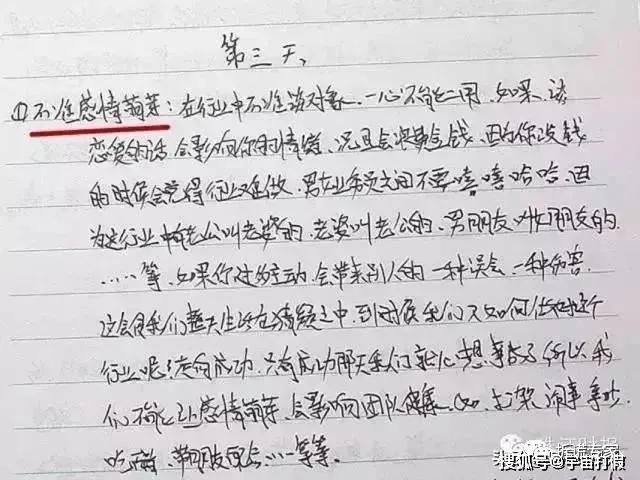 第三天、
⑴不准感情萌芽：在行业中不准谈对象、一心不能二用、如果、谈
恋爱的话、会影响你的情绪、况且会浪费金钱、因为你没钱
的时候会觉得行业难做、男女业务员之间不要嘻嘻哈哈、因
为这行业中有老公叫老婆的、老婆叫老公的、男朋友叫女朋友的、
……等、如果你过的主动、会带来别人的一种误会、一种伤害、
这会使我们整天生活在猜疑之中、到时候我们又如何在这个
行业呢？走向成功、只有成功那天我们就心想事成了所以我
们不能让感情萌芽、会影响团队 如、打架闹事
吃醋、带朋友 ……等等。
搜狐号@宇宙打假